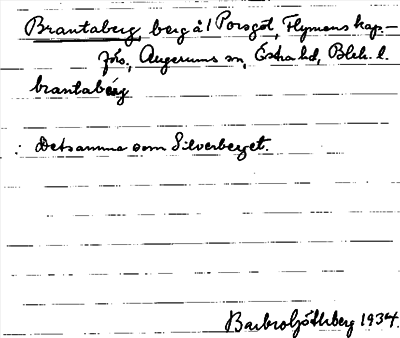 Brantaberg, berg å 1 Porsgöl, Flymens kap.-
förs., Augerums sn, Östra hd, Blek. l.
brantabärg
: Detsamma som Silverberget.
Barbro Göthberg 1934.